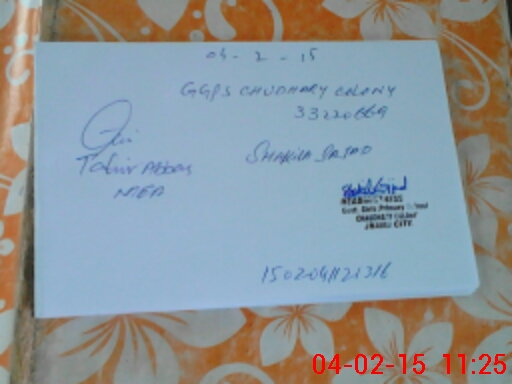 04-2-15
GGPS CHUDHARY COLONY
33220669
Tahir Abbas
MEA
SHAKILA SAJAD
HEADMISTRESS
Govt. Girls Primary School
CHAUDHARY COLONY
JHANG CITY
150204112316
04-02-15 11:25